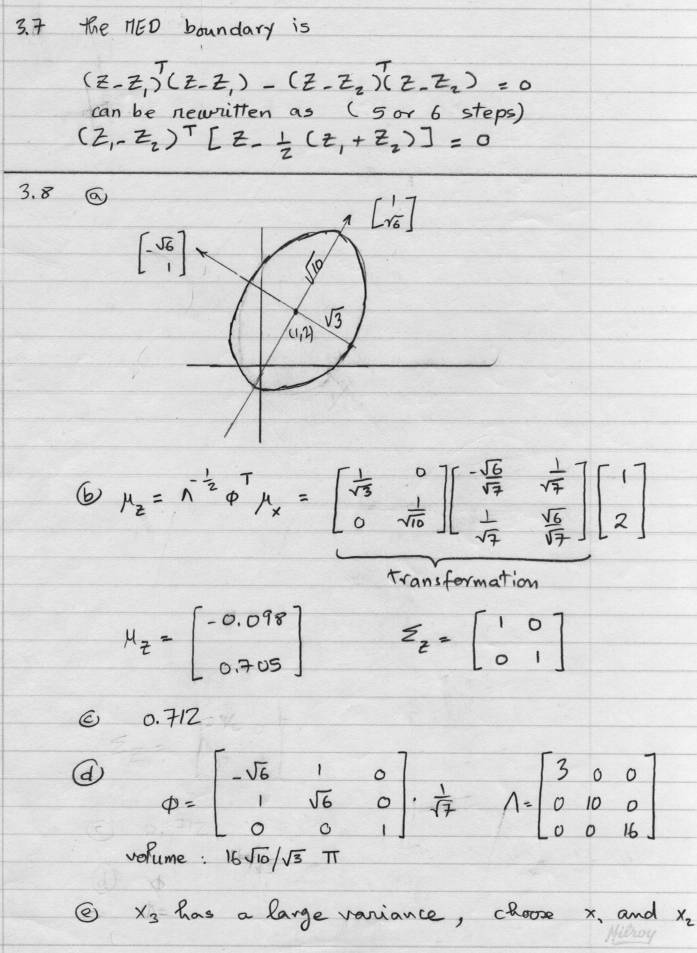 3.7 the MED boundary is
(z-z₁)ᵀ(z-z₁) - (z-z₂)ᵀ(z-z₂) = 0
can be rewritten as ( 5 or 6 steps)
(z₁-z₂)ᵀ [z - 1/2 (z₁+z₂)] = 0
3.8 ⓐ
[1 √6]
[-√6 1]
√10
√3
(1,2)
ⓑ μ_z = Λ^(-1/2) φᵀ μ_x = [1/√3 0; 0 1/√10] [-√6/√7 1/√7; 1/√7 √6/√7] [1; 2]
transformation
μ_z = [-0.098; 0.705] Σ_z = [1 0; 0 1]
ⓒ 0.712
ⓓ φ = [-√6 1 0; 1 √6 0; 0 0 1] · 1/√7 Λ = [3 0 0; 0 10 0; 0 0 16]
volume : 16√10/√3 π
ⓔ x₃ has a large variance, choose x₁ and x₂
Hilroy